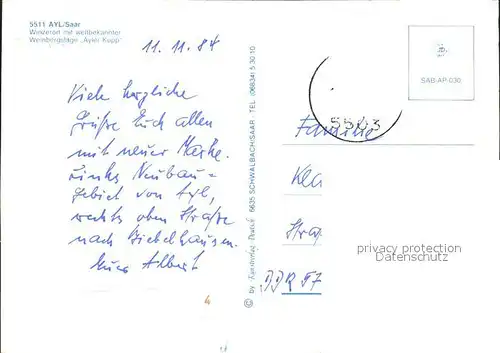 5511 AYL/Saar
Winzerort mit weltbekannter
Weinbergslage „Ayler Kupp"
11.11.84
Viele herzliche
Grüße Euch allen
mit neuer Marke.
Links Neubau-
gebiet von Ayl,
rechts oben Straße
nach Biebelhausen.
Euer Albert
4
© by Kunstverlag 6635 SCHWALBACH/SAAR · TEL. (06834) 5 30 10
SAB-AP-030
5503
Familie
Kla
Straß
DDR
privacy protection
Datenschutz